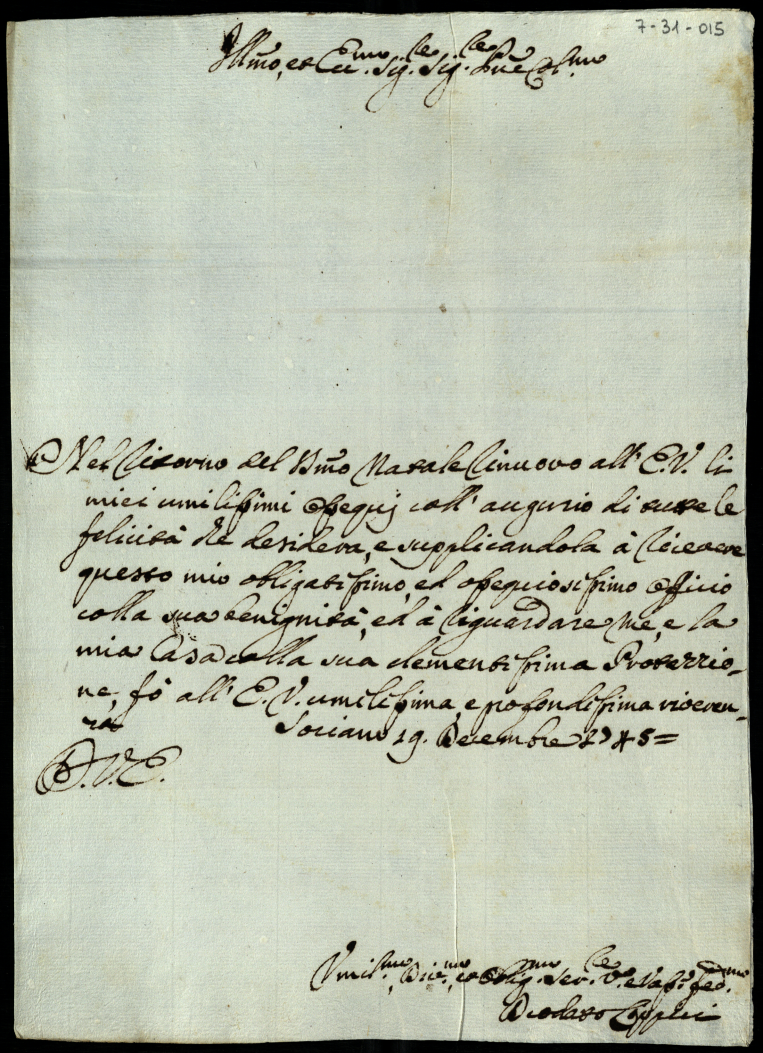 7-31-015
Illmo, et Ecc.mo Sig.re Sig.re Pne Col.mo
Nel ritorno del Smo Natale rinuovo all' E.V. li
miei umilissimi ossequj coll' augurio di tutte le
felicità che desidera, e supplicandola à ricevere
questo mio obligatissimo, ed ossequiosissimo officio
colla sua benignità, ed à riguardare me, e la
mia Casa colla sua clementissima Protezzio-
ne, fò all' E.V. umilissima, e profondissima riveren-
za
Soriano 19. Decembre 1745=
D.V.E.
Umil.mo, Div.mo, et Oblig.mo Ser.re V.o e Vass.o fed.mo
Diodato